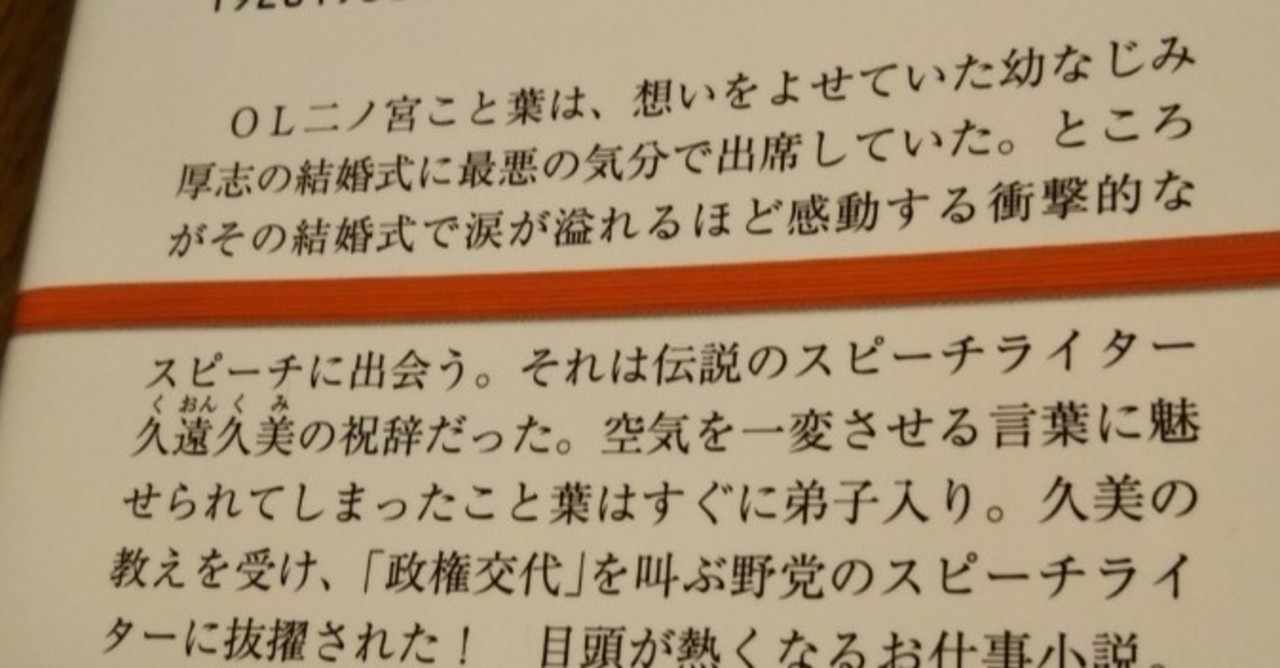 ＯＬ二ノ宮こと葉は、想いをよせていた幼なじみ
厚志の結婚式に最悪の気分で出席していた。ところ
がその結婚式で涙が溢れるほど感動する衝撃的な
スピーチに出会う。それは伝説のスピーチライター
久遠久美の祝辞だった。空気を一変させる言葉に魅
せられてしまったこと葉はすぐに弟子入り。久美の
教えを受け、「政権交代」を叫ぶ野党のスピーチライ
ターに抜擢された！　目頭が熱くなるお仕事小説。